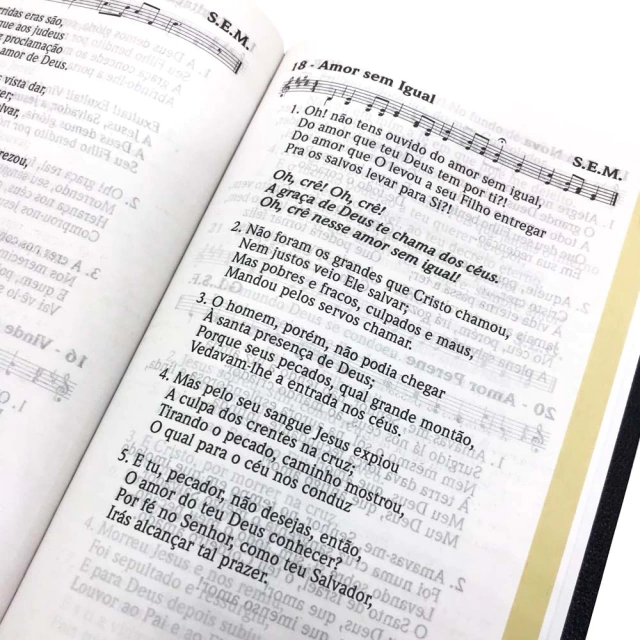 rridas eras são,
que aos judeus
z proclamação
amor de Deus.
S.E.M.
vista dar,
er;
lvar,
rezou,
18 - Amor sem Igual
S.E.M.
1. Oh! não tens ouvido do amor sem igual,
Do amor que teu Deus tem por ti?!
Do amor que O levou a seu Filho entregar
Pra os salvos levar para Si?!
Oh, crê! Oh, crê!
A graça de Deus te chama dos céus.
Oh, crê nesse amor sem igual!
2. Não foram os grandes que Cristo chamou,
Nem justos veio Ele salvar;
Mas pobres e fracos, culpados e maus,
Mandou pelos servos chamar.
3. O homem, porém, não podia chegar
À santa presença de Deus;
Porque seus pecados, qual grande montão,
Vedavam-lhe a entrada nos céus.
4. Mas pelo seu sangue Jesus expiou
A culpa dos crentes na cruz;
Tirando o pecado, caminho mostrou,
O qual para o céu nos conduz
5. E tu, pecador, não desejas, então,
O amor do teu Deus conhecer?
Por fé no Senhor, como teu Salvador,
Irás alcançar tal prazer,